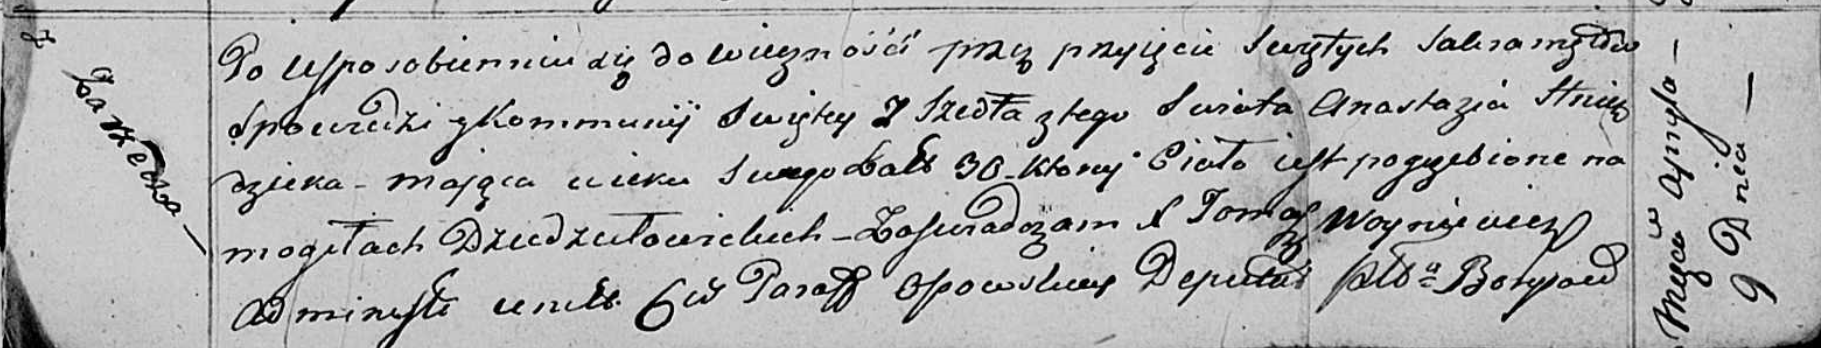 z
Zarzecza —
Po Usposobienniu się do wieczności przy przyięciu Swiętych Sakramętow
Spowiedzi y Kommunij Swiętey Zszedła ztego Swiata Anastazia
dzieka - mająca wieku Swego Lat 30 - ktorej Ciało iest pogrzebione na
mogiłach Dziedziłowickich - Zaswiadczam X Tomasz Woyniewicz
Administr Cer Paraff Osowskiey Deputat
Męca Apryla —
9 Dnia —